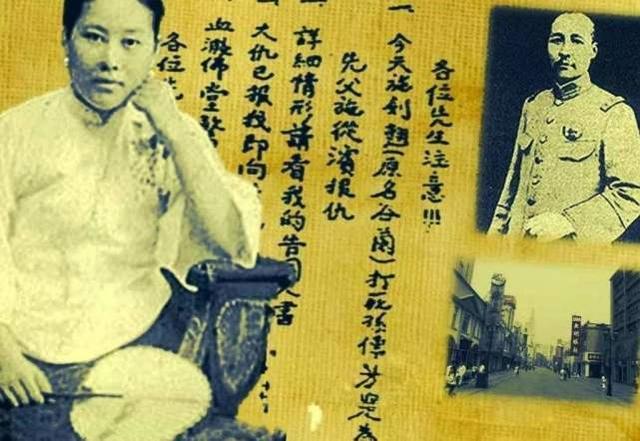 各位先生注意!!!
一、今天施劍翹(原名谷蘭)打死孫傳芳是為
先父施從濱報仇
詳細情形請看我的告國人書
大仇已報我即向
血濺佛堂驚
各位先